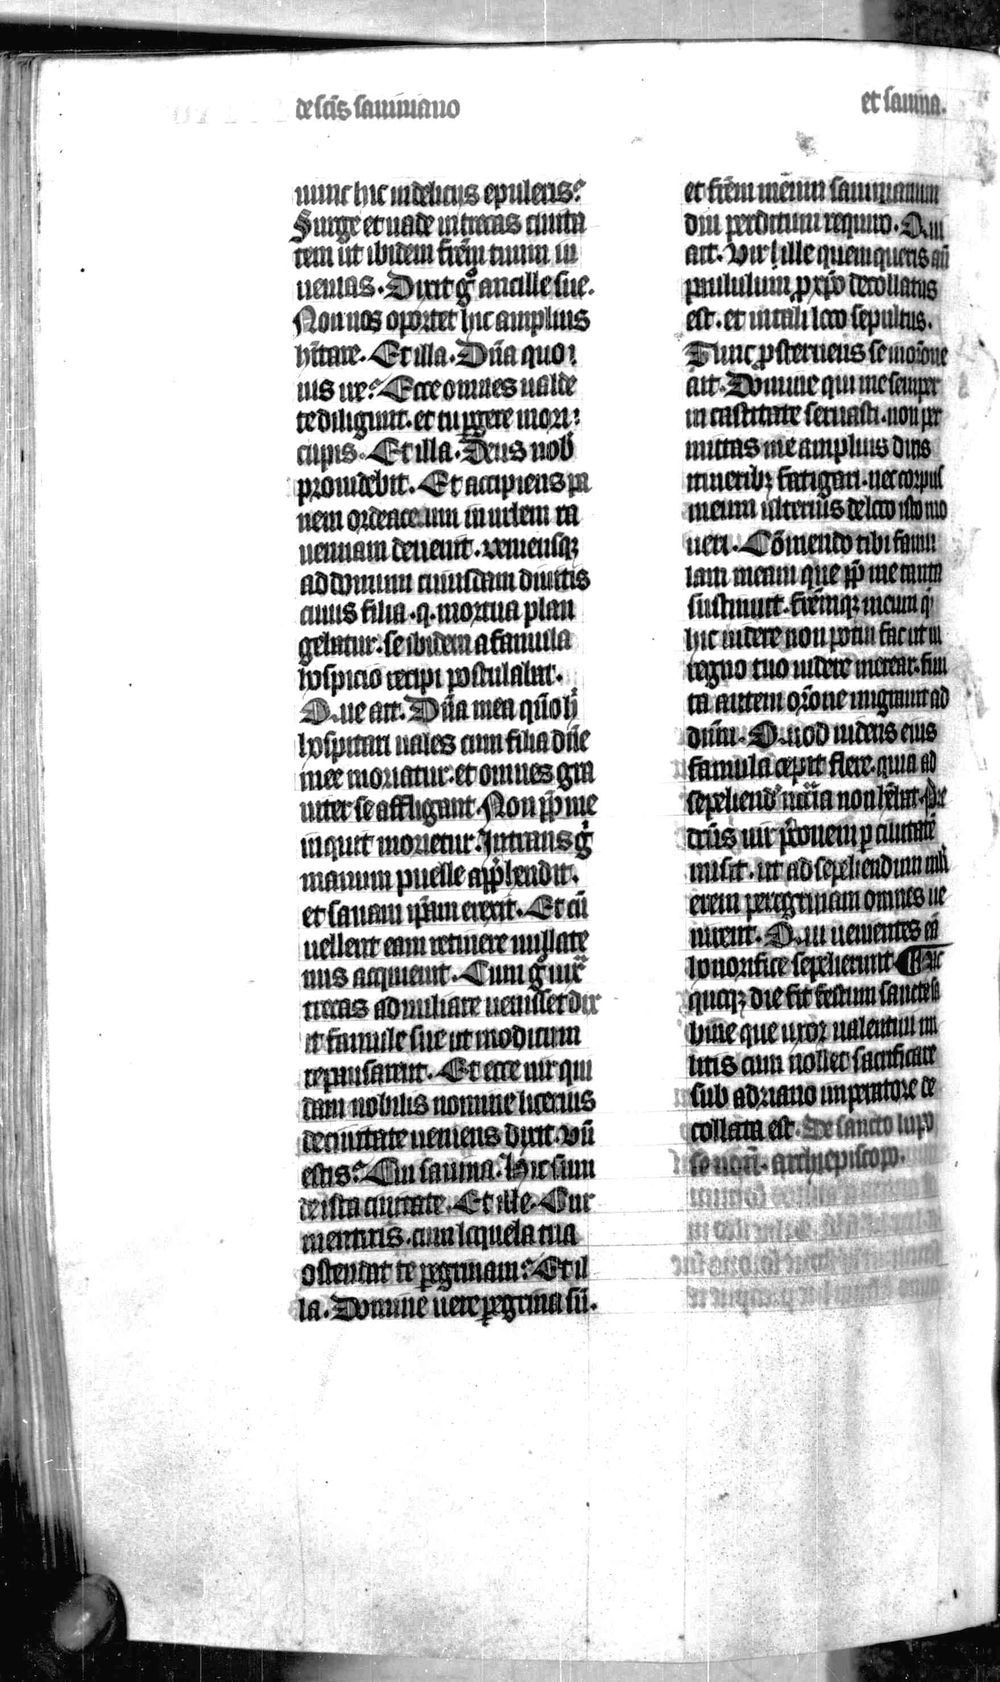 de sc̃is sauiniano
et sauina.
nunc hic in deliciis epuleris?
Surge et uade in trecas ciuita
tem ut ibidem fr̃em tuum in
uenias. Dixit g̊ ancille sue.
Non nos oportet hic amplius
h̃itare. Et illa. Dña quo i
tis ue? Ecce omnes ualde
te diligunt. et tu ꝑgere mori
cupis. Et illa. Deus nob̃
prouidebit. Et accipiens pa
nem ordeaceum in urbem ra
uennam deuenit. veniensqꝫ
ad domum cuiusdam diuitis
cuius filia .q. mortua plan
gebatur: se ibidem a famula
hospicio recipi postulabat.
Que ait. Dña mea qũo h̊
hospitari uales cum filia dñe
mee moriatur. et omnes gra
uiter se affligant. Non ꝓp̃ me
inquit morietur. Intrans g̊
manum puelle app̃hendit.
et sanam ip̃am erexit. Et cũ
uellent eam retinere nullate
nus acquieuit. Cum g̊ iux̃
trecas ad miliare uenisset dix
it famule sue ut modicum
repausarent. Et ecce uir qui
dam nobilis nomine licerius
de ciuitate ueniens dixit. vñ
estis? Cui sauina. Hic sum
de ista ciuitate. Et ille. Cur
mentiris. cum loquela tua
ostendat te ꝑegrinam? Et il
la. Domine uere ꝑegrina sũ.
et fr̃em meum sauinianum
diu perditum requiro. Qui
ait. Vir ille quem queris añ
paululum ꝓ xp̃o decollatus
est. et in tali loco sepultus.
Tunc ꝓsternens se in or̃one
ait. Domine qui me semper
in castitate seruasti. non per
mittas me amplius duris
itineribꝫ fatigari. nec corpus
meum ulterius de loco isto mo
ueri. Cõmendo tibi famu
lam meam que ꝓp̃ me tanta
sustinuit. fr̃emqꝫ meum q̃
hic uidere non potui fac ut in
regno tuo uidere merear. fini
ta autem or̃one migrauit ad
dñm. Quod uidens eius
famula cepit flere. quia ad
sepeliend̃ nc̃cia non h̃ebat. Pre
dictus uir p̃conem ꝑ ciuitatẽ
misit. ut ad sepeliendum muli
erem peregrinam omnes ue
nirent. Qui uenientes eã
honorifice sepelierunt. ¶ Hac
quoqꝫ die fit festum sancte sa
bine que uxor ualentini mi
litis cum nollet sacrificare
sub adriano imperatore de
collata est. De sancto lupo
senoñ. archiepiscopo.